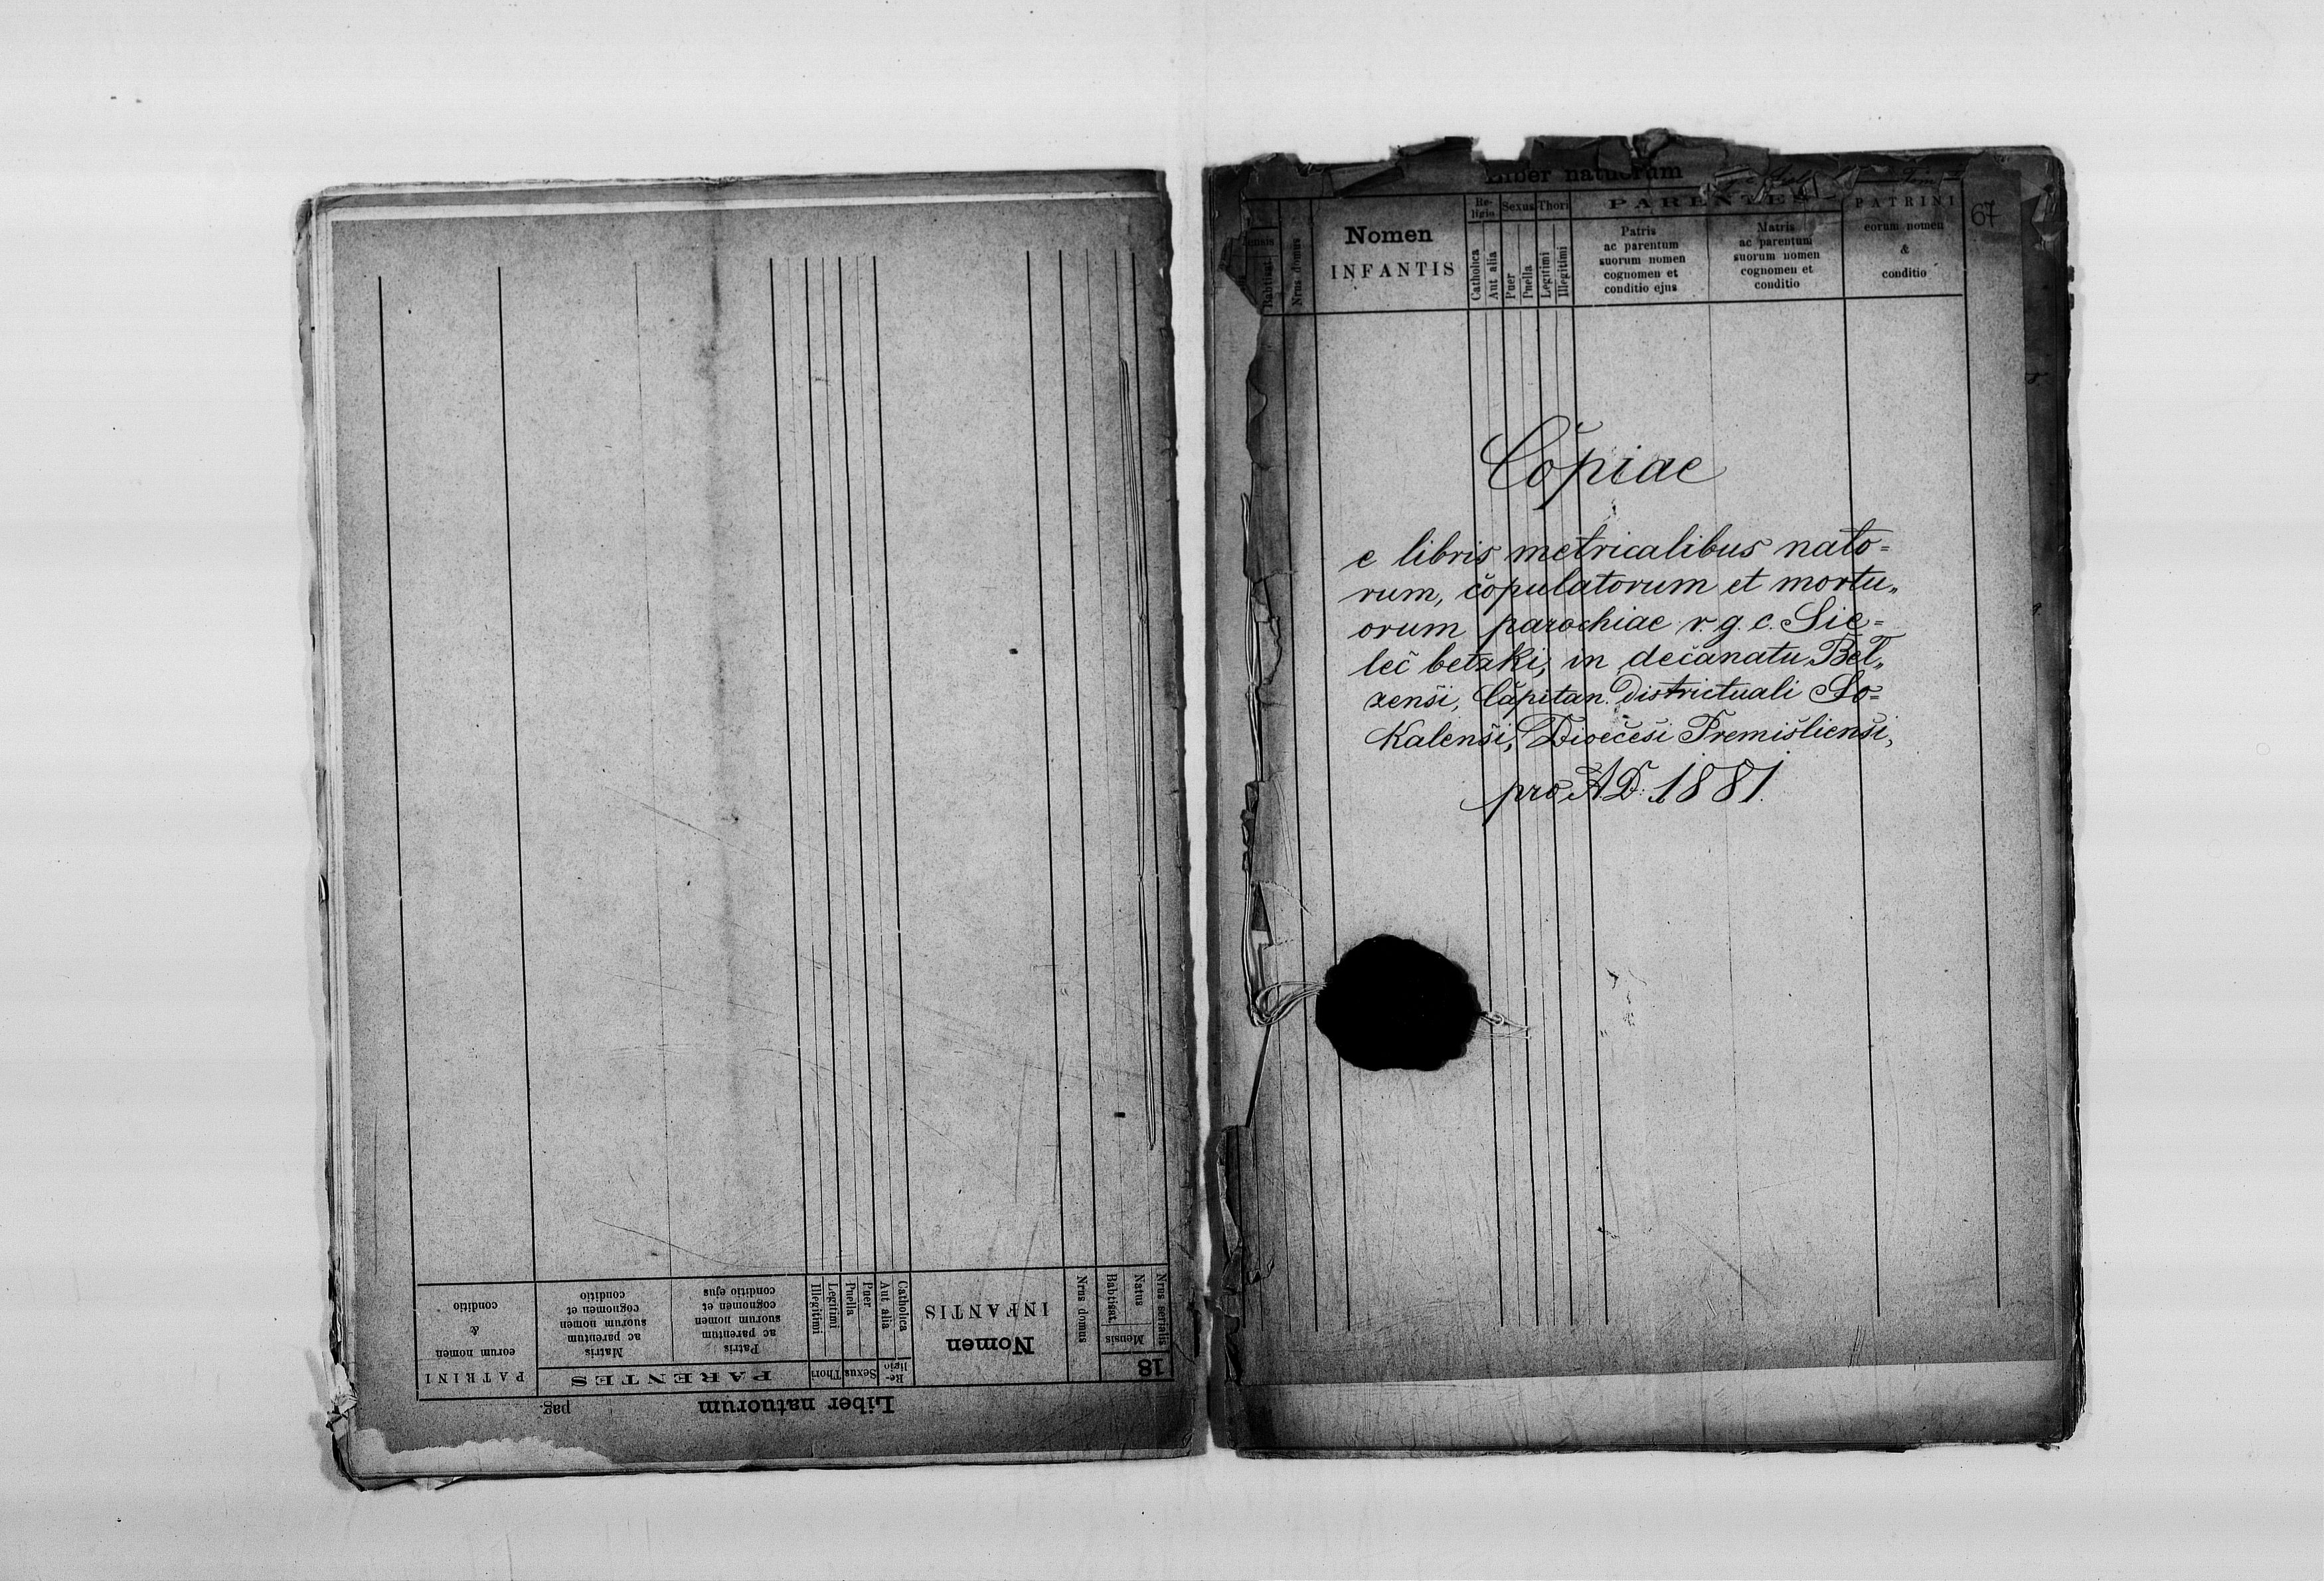 Liber natuorum
pag.
18
Nrus serialis
Mensis
Natus
Babtisat.
Nrus domus
Nomen
INFANTIS
Re-
ligio
Catholica
Aut alia
Sexus
Puer
Puella
Thori
Legitimi
Illegitimi
PARENTES
Patris
ac parentum
suorum nomen
cognomen et
conditio ejus
Matris
ac parentum
suorum nomen
cognomen et
conditio
PATRINI
eorum nomen
&
conditio
Liber natuorum
67
Nrus domus
Nomen
INFANTIS
Re-
ligio
Catholica
Aut alia
Sexus
Puer
Puella
Thori
Legitimi
Illegitimi
PARENTES
Patris
ac parentum
suorum nomen
cognomen et
conditio ejus
Matris
ac parentum
suorum nomen
cognomen et
conditio
PATRINI
eorum nomen
&
conditio
Copiae
e libris metricalibus nato=
rum, copulatorum et mortu„
orum parochiae r. g. c. Sie=
lec bełzki, in decanatu Bel„
zensi, Capitan. Districtuali So=
kalensi, Dioecesi Premisliensi,
pro A.D. 1881.